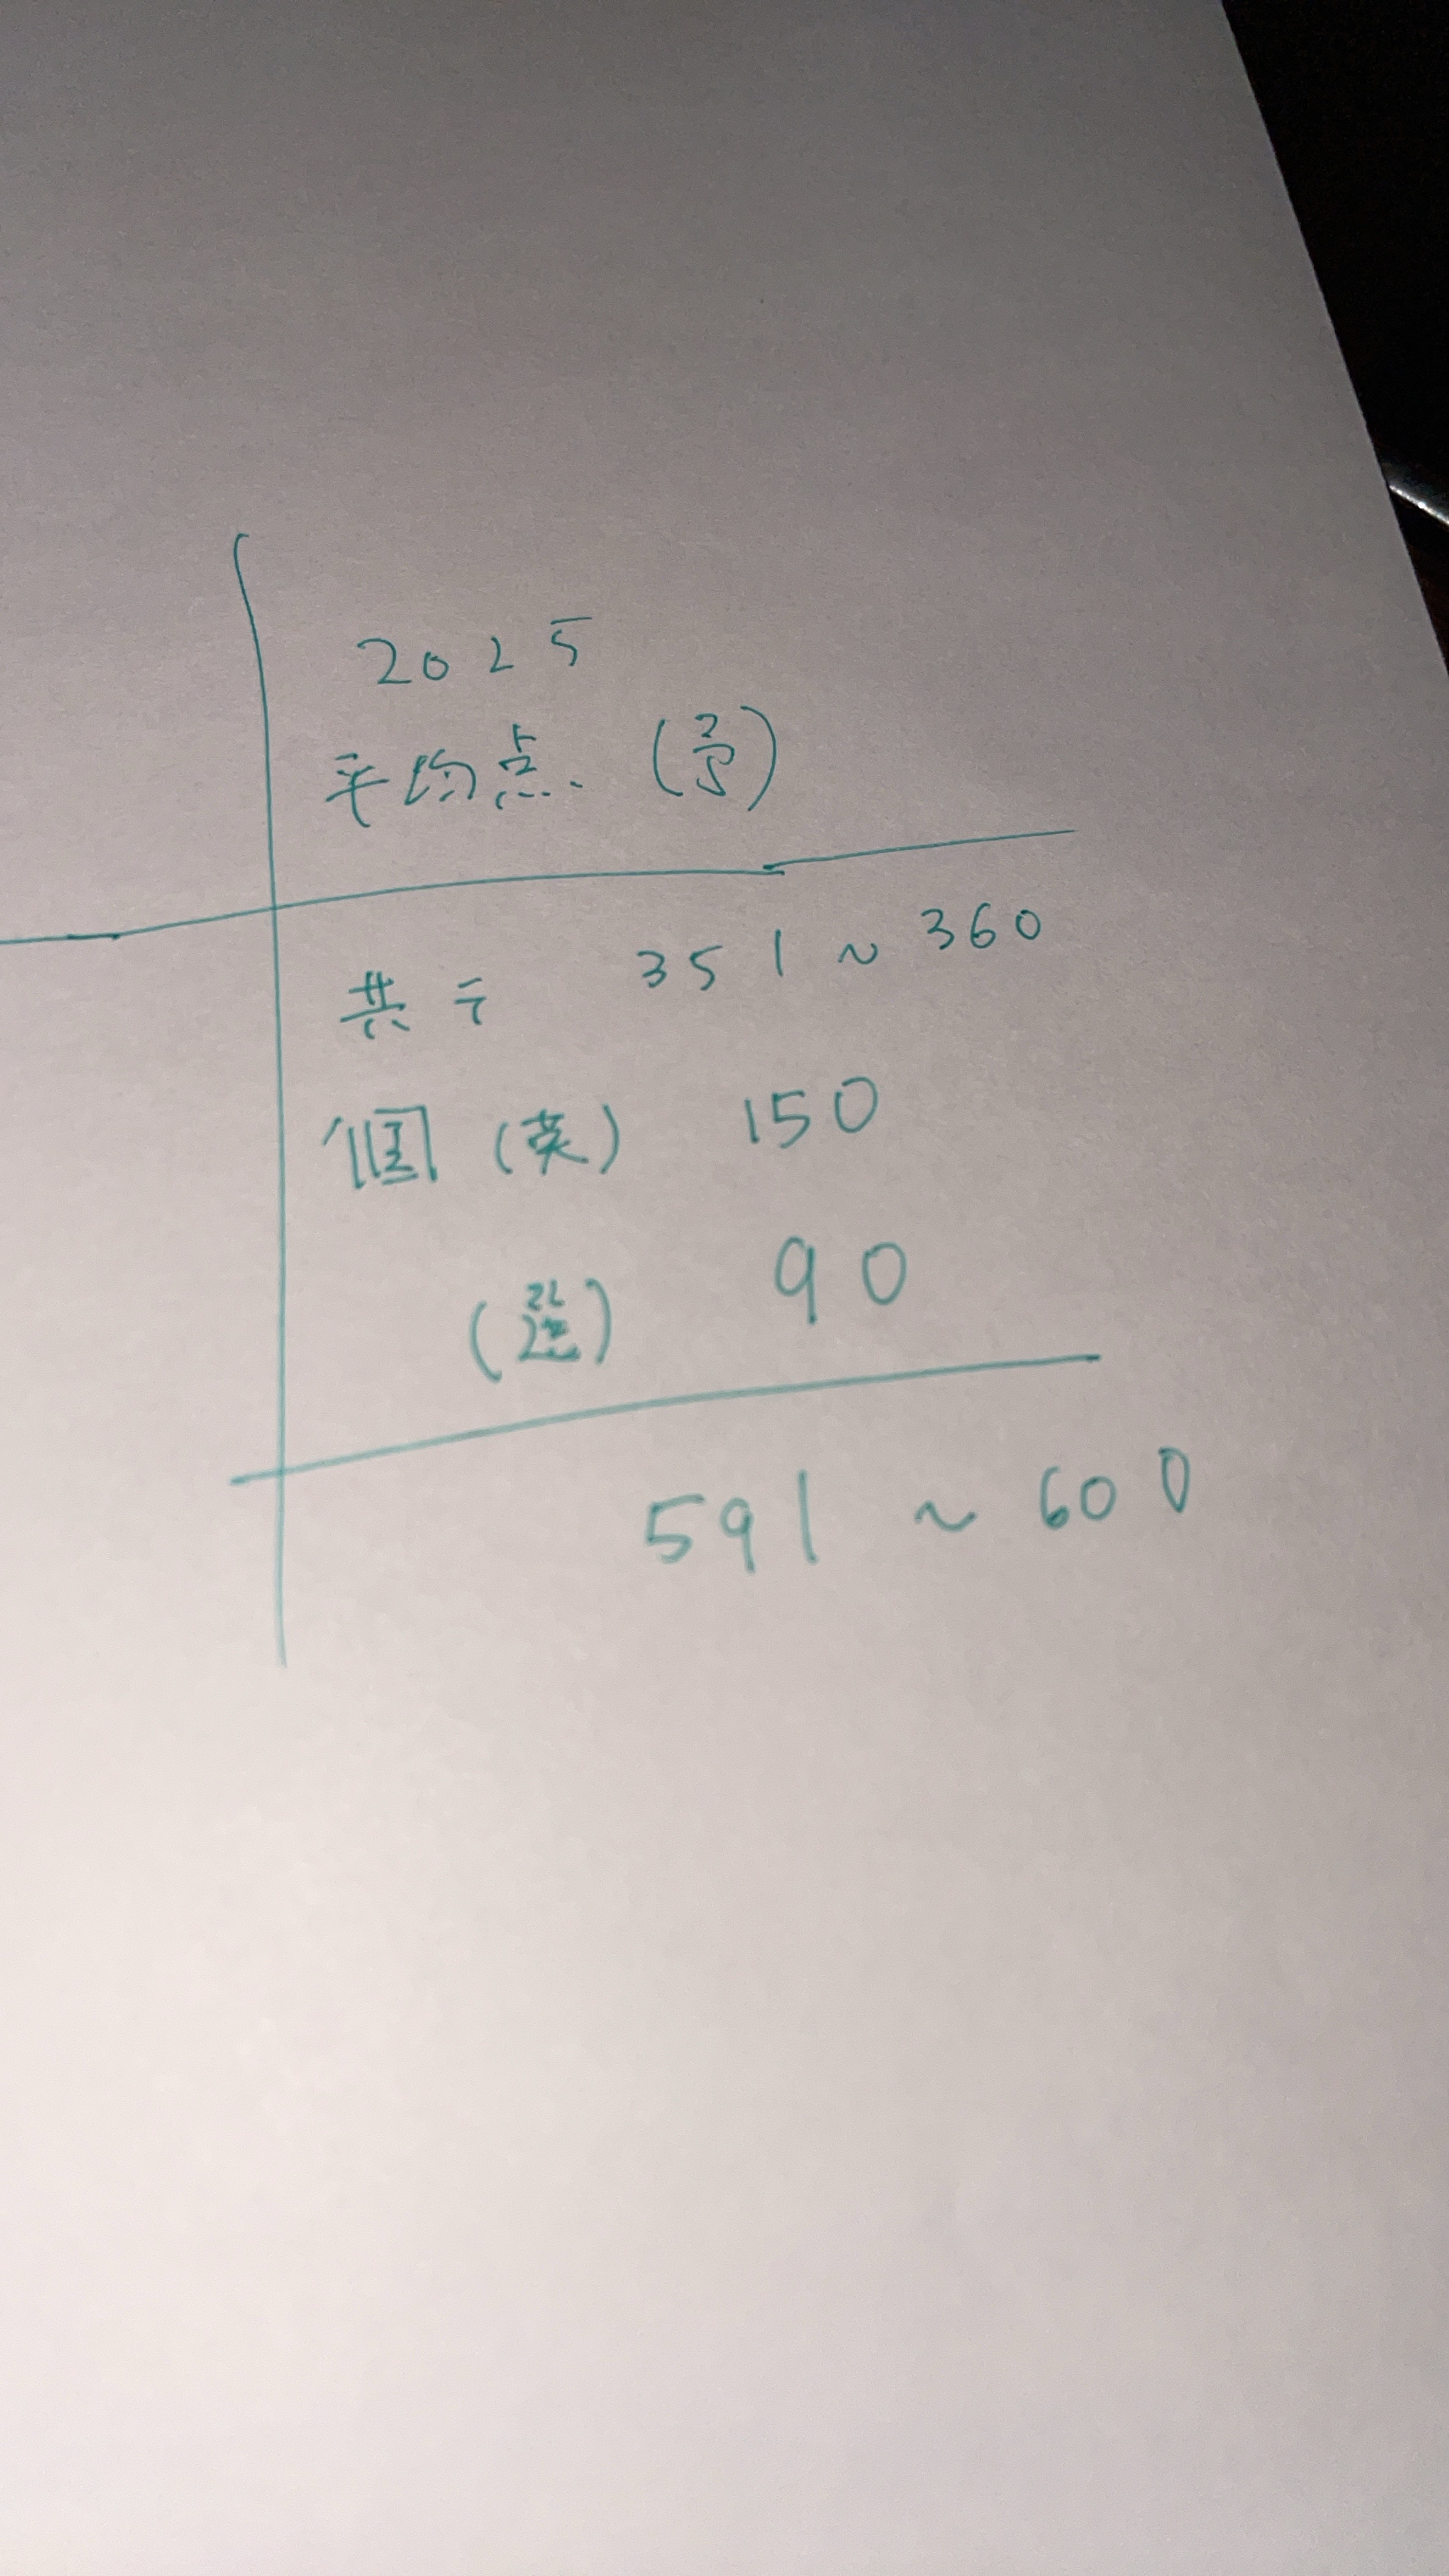 2025
平均点 (予)
共テ 351~360
個 (英) 150
(選) 90
591~600